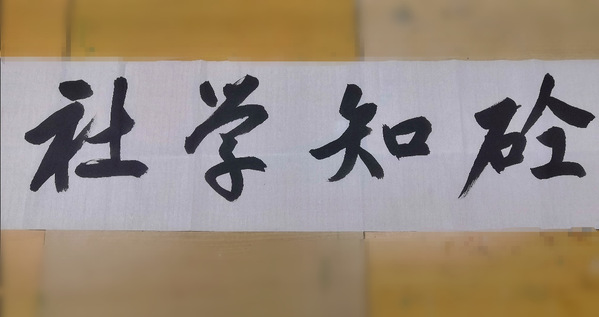 砼知学社